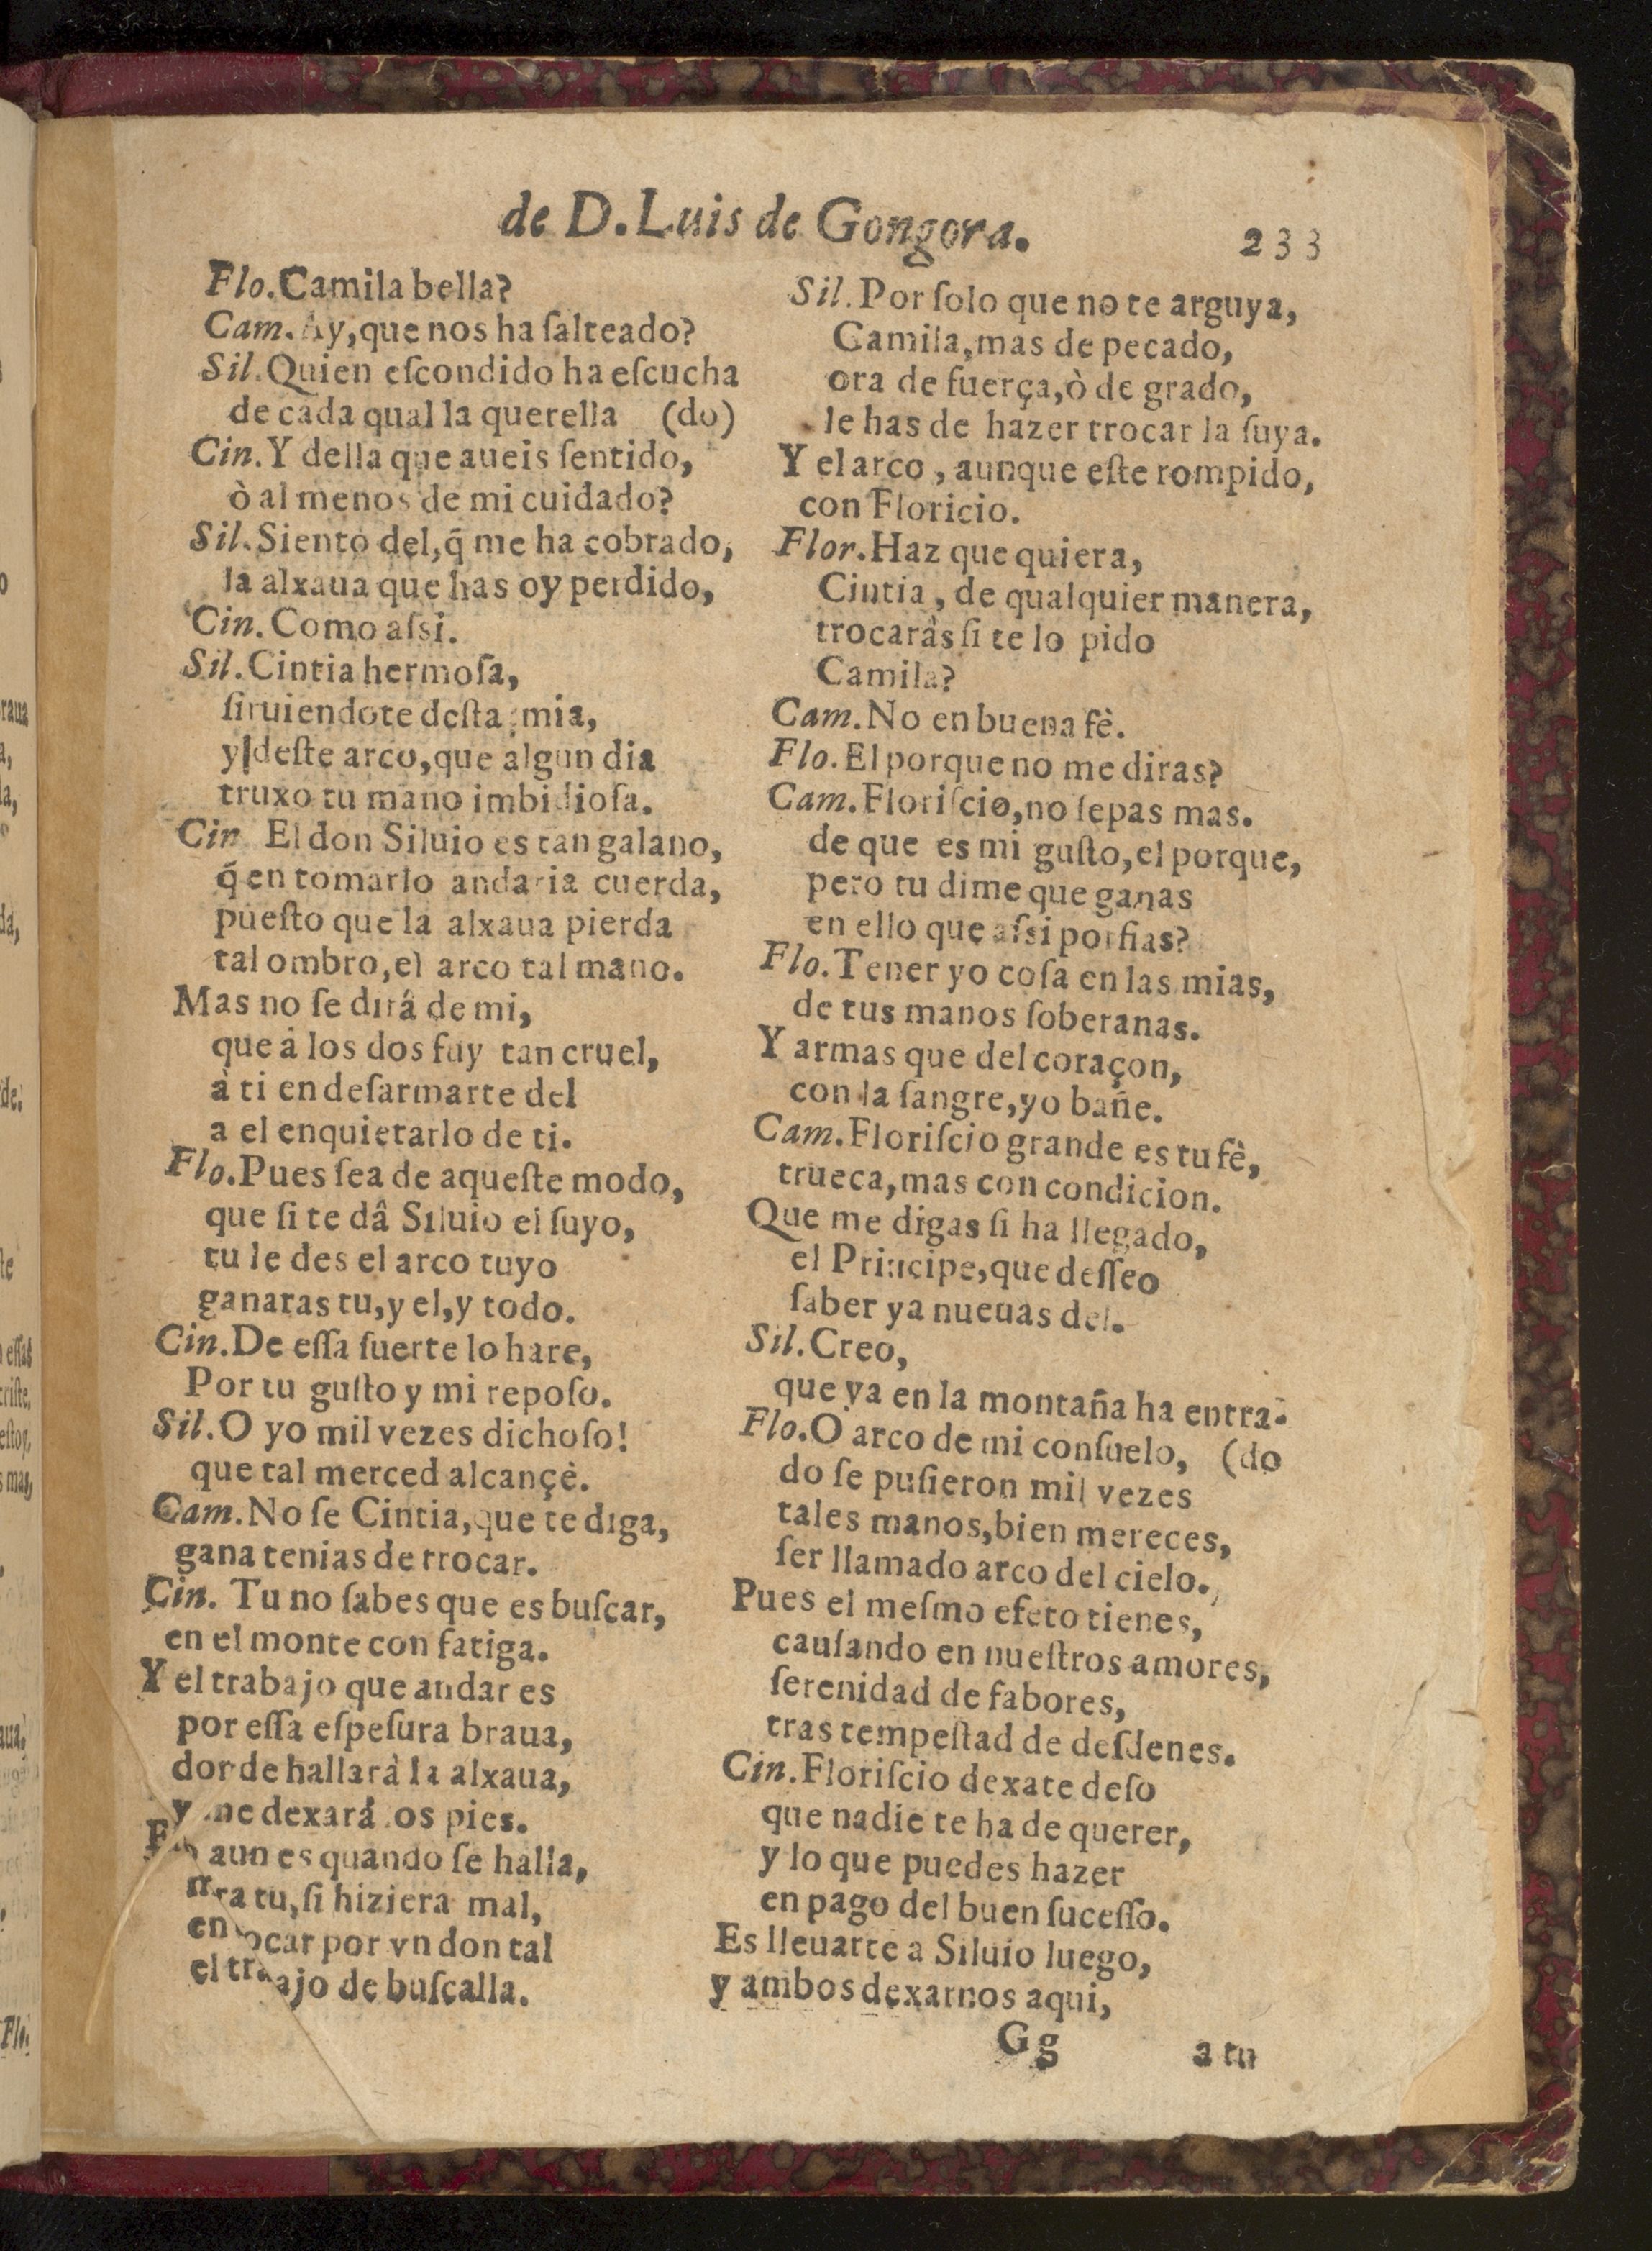 de D. Luis de Gongora.
233
Flo. Camila bella?
Cam. Ay, que nos ha ſalteado?
Sil. Quien eſcondido ha eſcucha
de cada qual la querella (do)
Cin. Y della que aueis ſentido,
ò al menos de mi cuidado?
Sil. Siento del, q̃ me ha cobrado,
la alxaua que has oy perdido,
Cin. Como aſsi.
Sil. Cintia hermoſa,
ſiruiendote deſta mia,
y deſte arco, que algun dia
truxo tu mano imbidioſa.
Cin El don Siluio es tan galano,
q̃ en tomarlo andaria cuerda,
pueſto que la alxaua pierda
tal ombro, el arco tal mano.
Mas no ſe dirâ de mi,
que á los dos fuy tan cruel,
à ti en deſarmarte del
a el enquietarlo de ti.
Flo. Pues ſea de aqueſte modo,
que ſi te dâ Siluio el ſuyo,
tu le des el arco tuyo
ganaras tu, y el, y todo.
Cin. De eſſa ſuerte lo hare,
Por tu guſto y mi repoſo.
Sil. O yo mil vezes dichoſo!
que tal merced alcançè.
Cam. No ſe Cintia, que te diga,
gana tenias de trocar.
Cin. Tu no ſabes que es buſcar,
en el monte con fatiga.
Y el trabajo que andar es
por eſſa eſpeſura braua,
donde hallarà la alxaua,
y me dexará los pies.
aun es quando ſe halla,
tu, ſi hiziera mal,
en por vn don tal
el de buſcalla.
Sil. Por ſolo que no te arguya,
Camila, mas de pecado,
ora de fuerça, ò de grado,
le has de hazer trocar la ſuya.
Y el arco, aunque eſte rompido,
con Floricio.
Flor. Haz que quiera,
Cintia, de qualquier manera,
trocaràs ſi te lo pido
Camila?
Cam. No en buena fè.
Flo. El porque no me diras?
Cam. Floriſcio, no ſepas mas.
de que es mi guſto, el porque,
pero tu dime que ganas
en ello que aſsi porfias?
Flo. Tener yo coſa en las mias,
de tus manos ſoberanas.
Y armas que del coraçon,
con la ſangre, yo bañe.
Cam. Floriſcio grande es tu fè,
trueca, mas con condicion.
Que me digas ſi ha llegado,
el Principe, que deſſeo
ſaber ya nueuas del.
Sil. Creo,
que ya en la montaña ha entra-
Flo. O arco de mi conſuelo, (do
do ſe puſieron mil vezes
tales manos, bien mereces,
ſer llamado arco del cielo.
Pues el meſmo efeto tienes,
cauſando en nueſtros amores,
ſerenidad de fabores,
tras tempeſtad de deſdenes.
Cin. Floriſcio dexate deſo
que nadie te ha de querer,
y lo que puedes hazer
en pago del buen ſuceſſo.
Es lleuarte a Siluio luego,
y ambos dexarnos aqui,
Gg
a tu